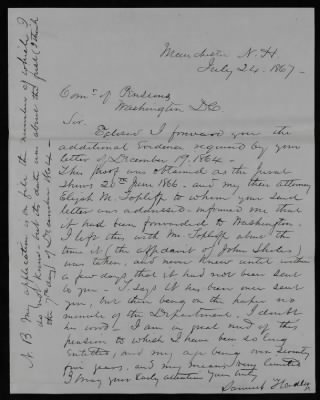 Manchester N.H.
July 24. 1867.
Com's of Pensions
Washington DC
Sir.
Enclosed I forward you the
additional Evidence required by your
letter of December 19. 1864.
This proof was obtained as the jurat
shows 20th June 1866. and my then attorney
Elijah M. Topliff to whom your said
letter was addressed informed me that
it had been forwarded to Washington.
I left this with Mr Topliff about the
time it (the affidavit of John Shiles)
was taken, and never knew until within
a few days, that it had not been sent
to you. I says it has been once sent
you, but there being on the paper no
minute of the Department. I doubt
his word. I am in great need of this
pension to which I have been so long
Entitled, and my age being over seventy
five years, and my means very limited
I pray your Early attention. Yours truly
Samuel
N B My application is on file the number of which I
do not know but its date was about the first (I think
the 7th day) of December 1864